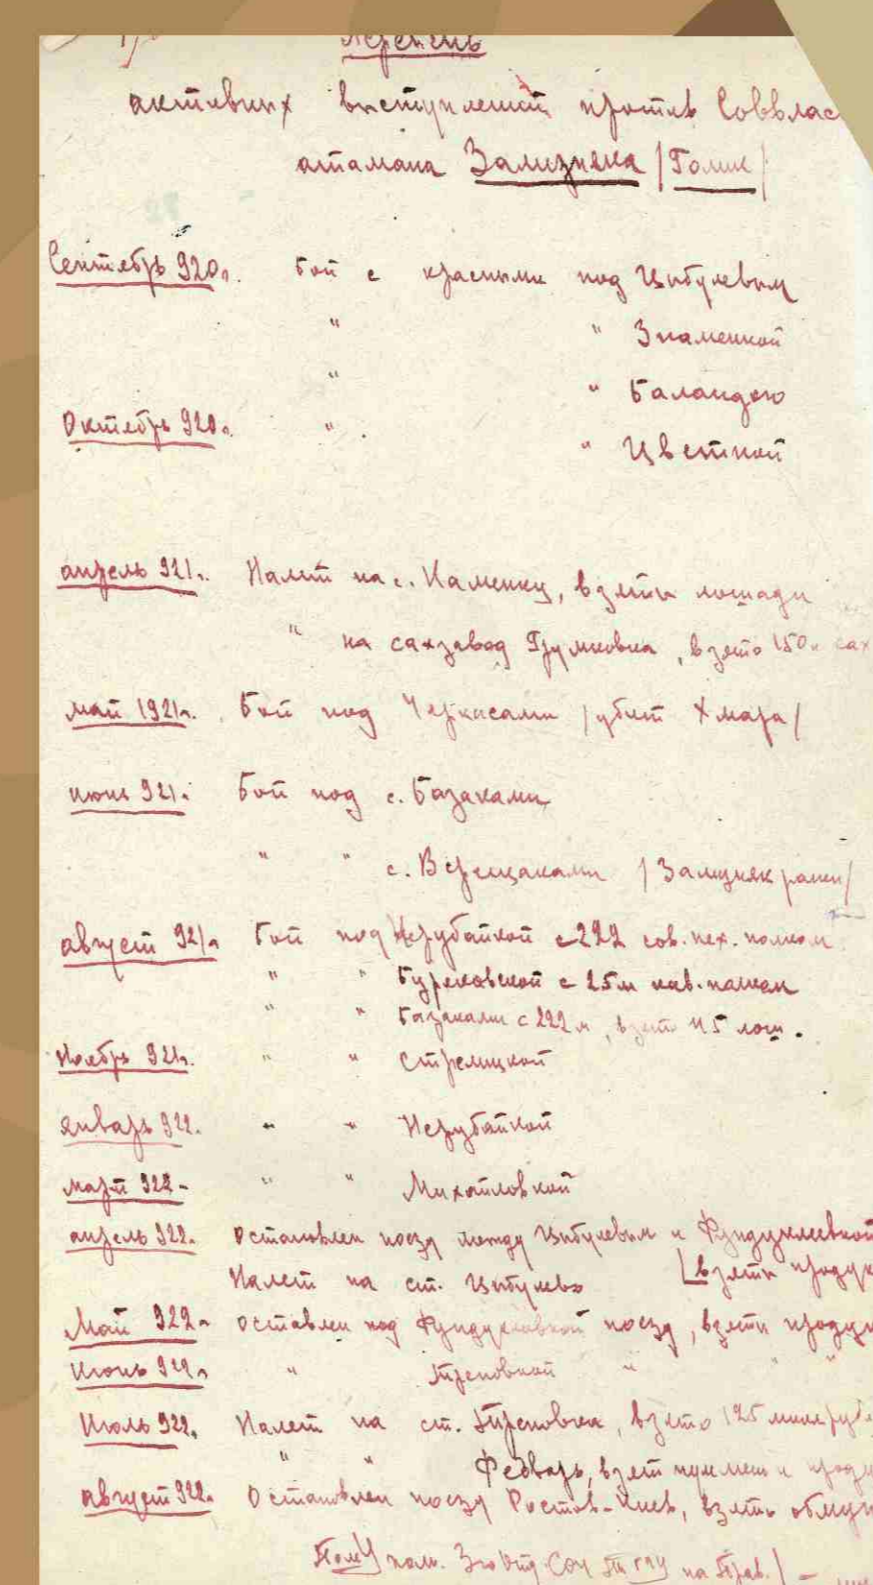 Перечень
активных выступлений против Соввлас
атамана Зализняка /Голик/
Сентябрь 920г. Бой с красными под Цыбулевым
" " Знаменкой
" " Баландою
Октябрь 920г. " " Цветной
апрель 921г. Налет на с. Каменку, взяты лошади
" на сахзавод Грушковка, взято 150п сах
май 1921г. Бой под Черкасами /убит Хмара/
июнь 921г. Бой под с. Базаками
" " с. Верещаками /Зализняк ранен/
август 921г Бой под Нерубайкой с 222 сов. пех. полком
" " Буреховской с 25м кав. полком
" " Базаками с 222м, взято 45 лош.
Ноябрь 921г. " " Стремицкой
январь 922. " " Нерубайкой
март 922 - " " Михайловкой
апрель 922. Остановлен поезд между Цыбулевым и Фундуклеевкой
Налет на ст. Цыбулево взяты проду
Май 922г Оставлен под Фундуклеевкой поезд, взяты проду
Июнь 922г " Треповкой " " "
Июль 922. Налет на ст. Треповка, взято 125 мил рубл
" " Федварь, взят пулемет и проду
август 922. Остановлен поезд Ростов-Киев, взято обмун
на Прав./ -